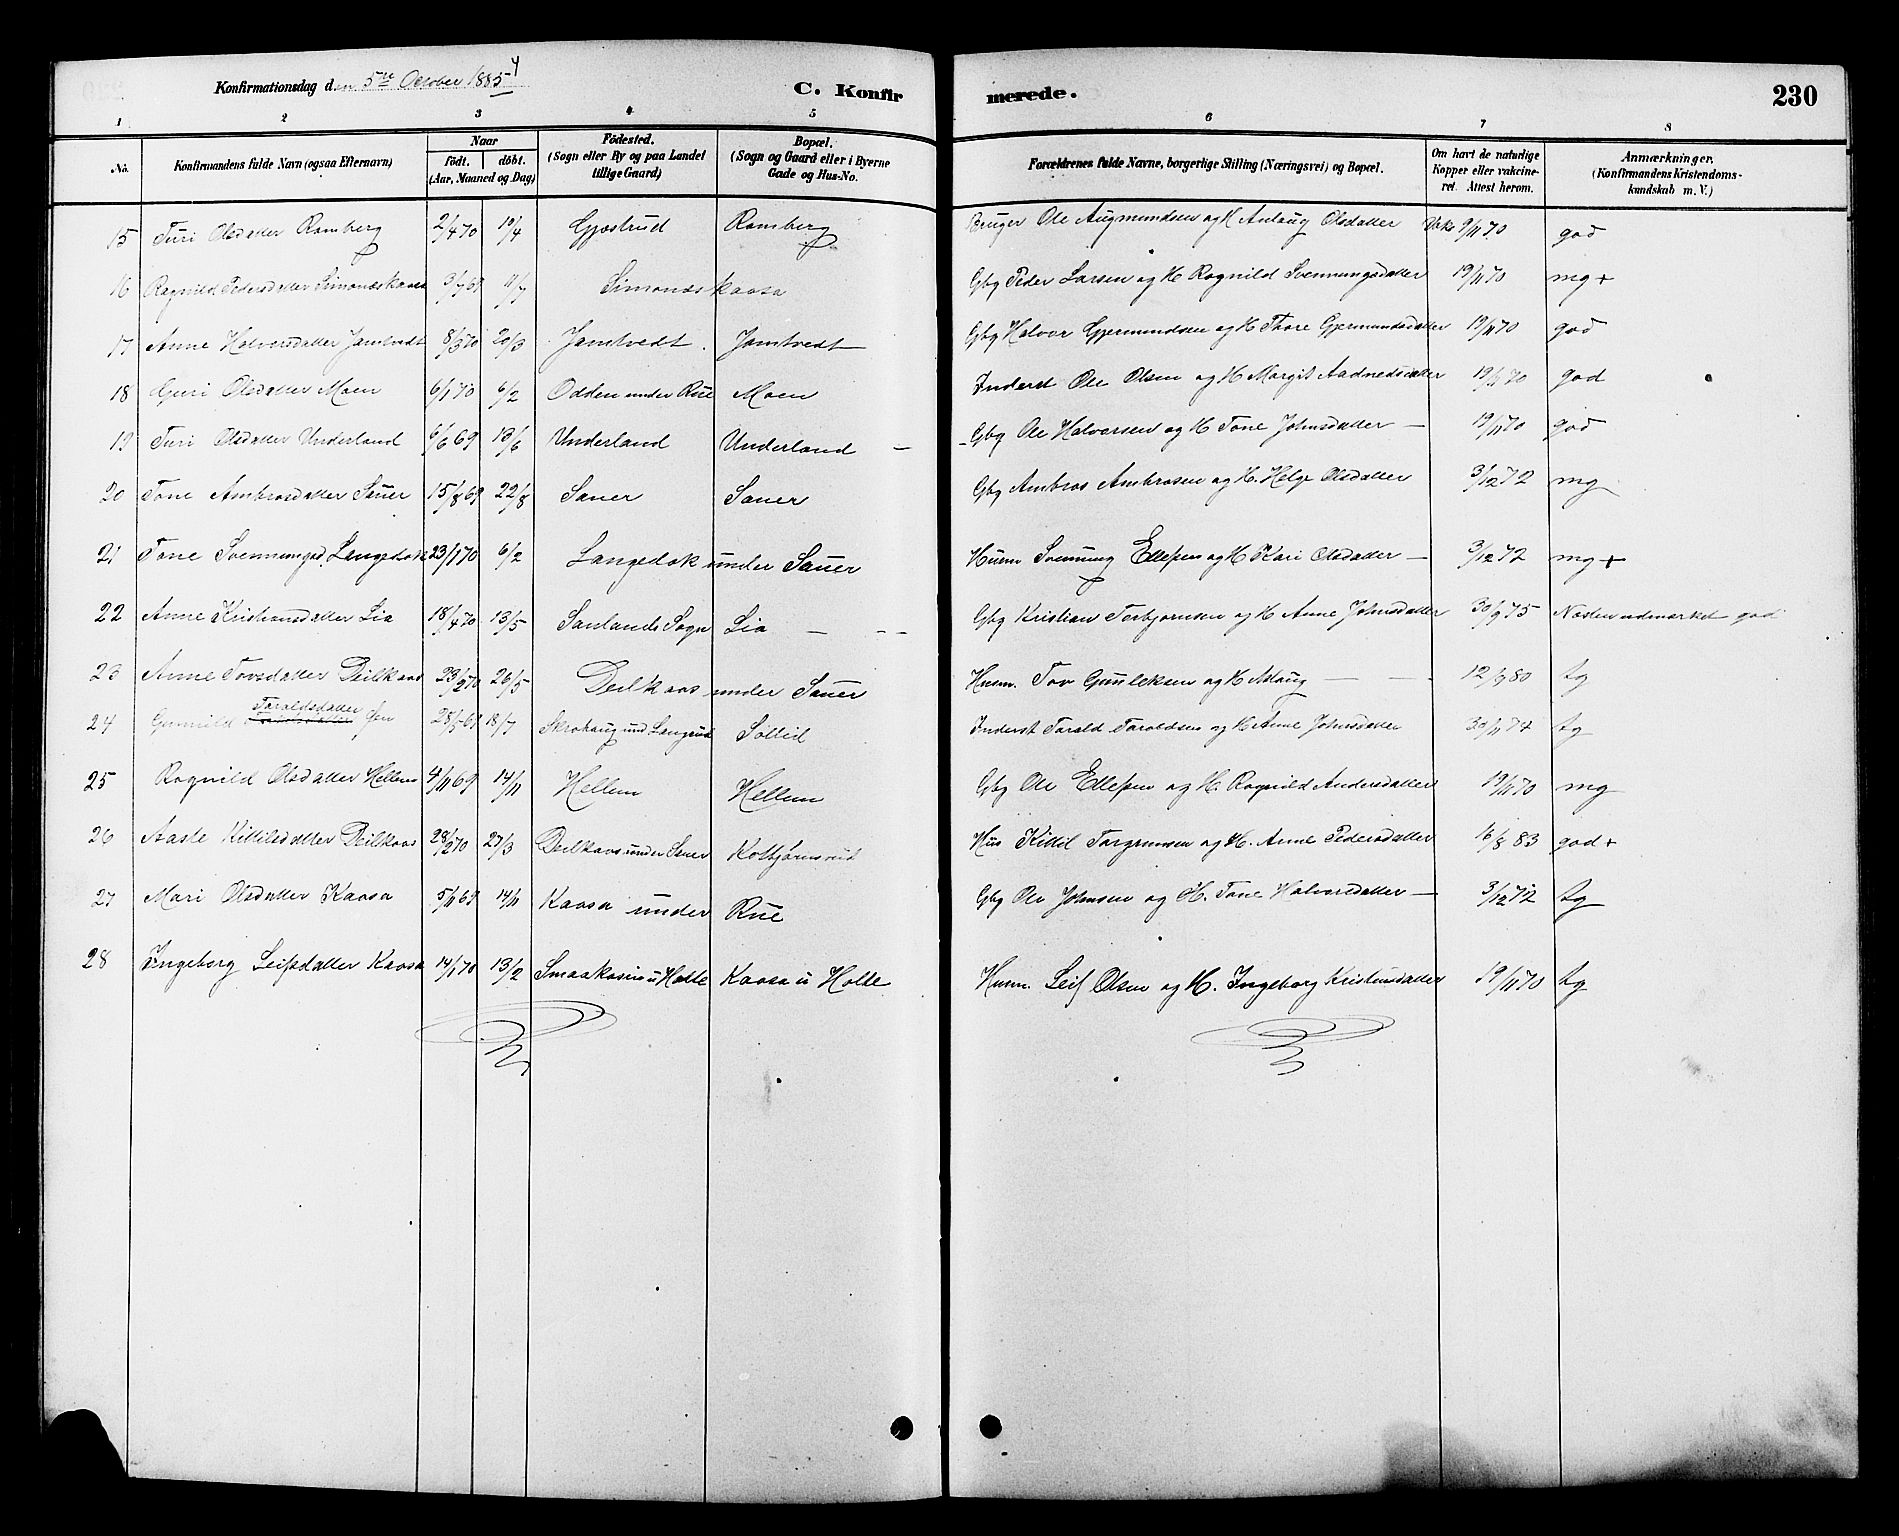 Konfirmationsdag den 5te October 1885 4
C. Konfirmerede. 230
1 2 3 4 5 6 7 8
No. Konfirmandens fulde Navn (ogsaa Efternavn) Naar födt. döbt. (Aar, Maaned og Dag) Födested. (Sogn eller By og paa Landet tillige Gaard) Bopæl. (Sogn og Gaard eller i Byerne Gade og Hus-No. Forældrenes fulde Navne, borgerlige Stilling (Næringsvei) og Bopæl. Om havt de naturlige Kopper eller vakcineret. Attest herom. Anmærkninger. (Konfirmandens Kristendomskundskab m. V.)
15 Turi Olsdatter Ramberg 2/4 70 19/4 Gjøstrud Ramberg Bruger Ole Augmundsen og H Anlaug Olsdatter Vak. 9/11 70 god
16 Ragnild Pedersdatter Simonæskaasa 3/7 69 11/7 Simonæskaasa Gbg Peder Larsen og H Ragnild Svennungsdatter 19/11 70 mg +
17 Anne Halvorsdatter Jamtvedt 8/3 70 20/3 Jamtvedt Jamtvedt Gbg Halvor Gjermundsen og H Thore Gjermundsdatter 19/11 70 god
18 Guri Olsdatter Moen 6/1 70 6/2 Odden under Rue Moen Inderst Ole Olsen og H Margit Aadnedsdatter 19/11 70 god
19 Turi Olsdatter Underland 6/6 69 13/6 Underland Underland Gbg Ole Halvorsen og H Tone Johnsdatter 19/11 70 god
20 Tone Ambrosdatter Sauer 15/8 69 22/8 Sauer Sauer Gbg Ambros Ambrosen og H. Helge Olsdatter 3/12 72 mg
21 Tone Svennungsd. Langedok 23/1 70 6/2 Langedok under Sauer Husm Svennung Ellefsen og H Kari Olsdatter 3/12 72 mg +
22 Anne Kristiansdatter Lia 18/4 70 13/5 Saulands Sogn Lia Gbg Kristian Torbjørnsen og H Anne Johnsdatter 30/9 75 Næsten udmærket god
23 Anne Tovsdatter Deilkaas 23/2 70 26/5 Deilkaas under Sauer Husm. Tov Gunleksen og H Aslaug 12/9 80 tg
24 Gunnild Taraldsdatter 28/5 69 18/7 Skrohaug und. Langrud Sollid Inderst Tarald Taraldsen og H Anne Johnsdatter 30/11 74 tg
25 Ragnild Olsdatter Hellem 4/11 69 14/11 Hellem Hellem Gbg Ole Ellefsen og H. Ragnild Andersdatter 19/11 70 mg
26 Aaste Kittilsdatter Deilkaas 28/2 70 27/3 Deilkaas under Sauer Kolbjørnsrud Hus Kittil Torgrimsen og H. Anne Pedersdatter 16/8 83 god +
27 Mari Olsdatter Kaasa 5/11 69 14/11 Kaasa under Rue Gbg Ole Johnsen og H. Tone Halvorsdatter 3/12 72 tg
28 Ingeborg Leifsdatter Kaasa 14/1 70 13/2 u Holte Kaasa u Holte Husm. Leif Olsen og H. Ingeborg Kristensdatter 19/11 70 tg